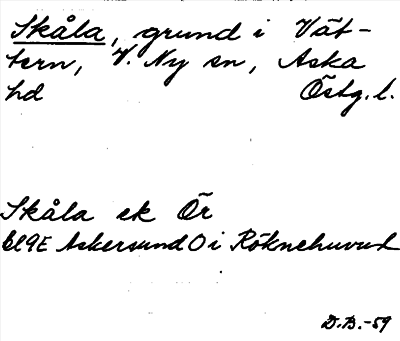 Skåla, grund i Vät-
tern, V. Ny sn, Aska
hd Östg. l.
Skåla ek Ör
bl9E Askersund O i Röknehuvud
D.B.-59